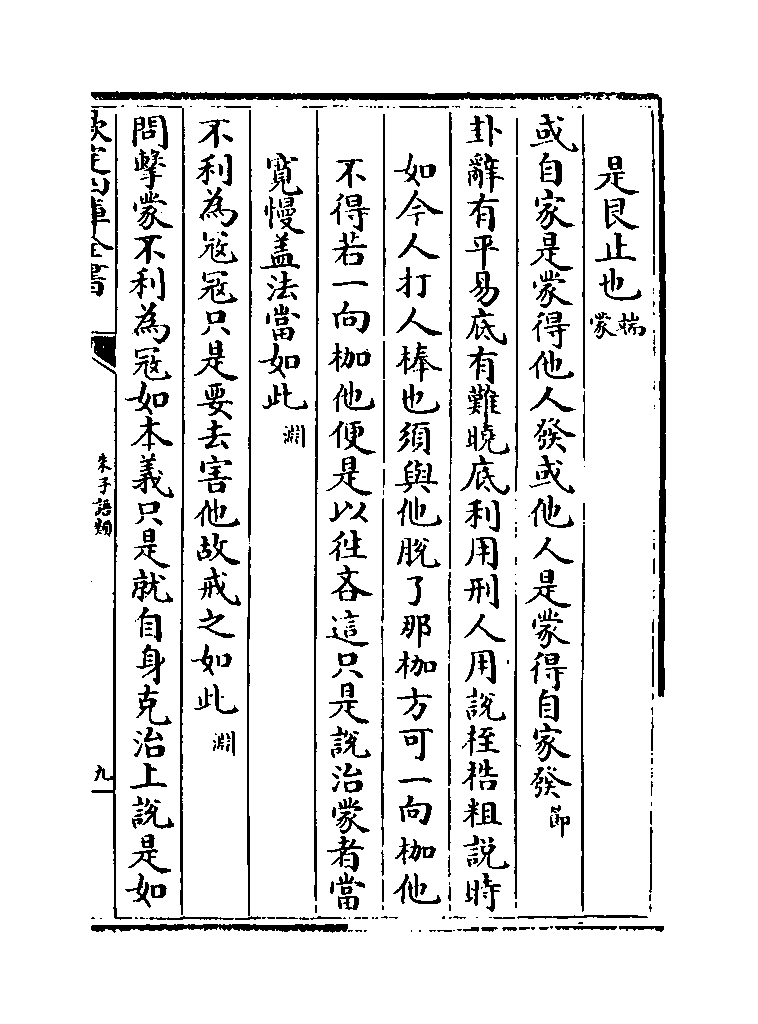 是艮止也端蒙
或自家是蒙得他人發或他人是蒙得自家發節
卦辭有平易底有難曉底利用刑人用說桎梏粗說時
如今人打人棒也須與他脫了那枷方可一向枷他
不得若一向枷他便是以徃吝這只是說治蒙者當
寛慢盖法當如此淵
不利為冦冦只是要去害他故戒之如此淵
問擊蒙不利為冦如本義只是就自身克治上說是如
欽定四庫全書
朱子語類
九